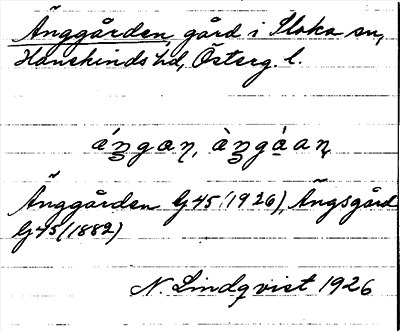 Änggården, gård i Slaka sn,
Hanekinds hd, Österg. l.
Änggården G 45 (1926), Ängsgård
G 45 (1882)
N. Lindqvist 1926